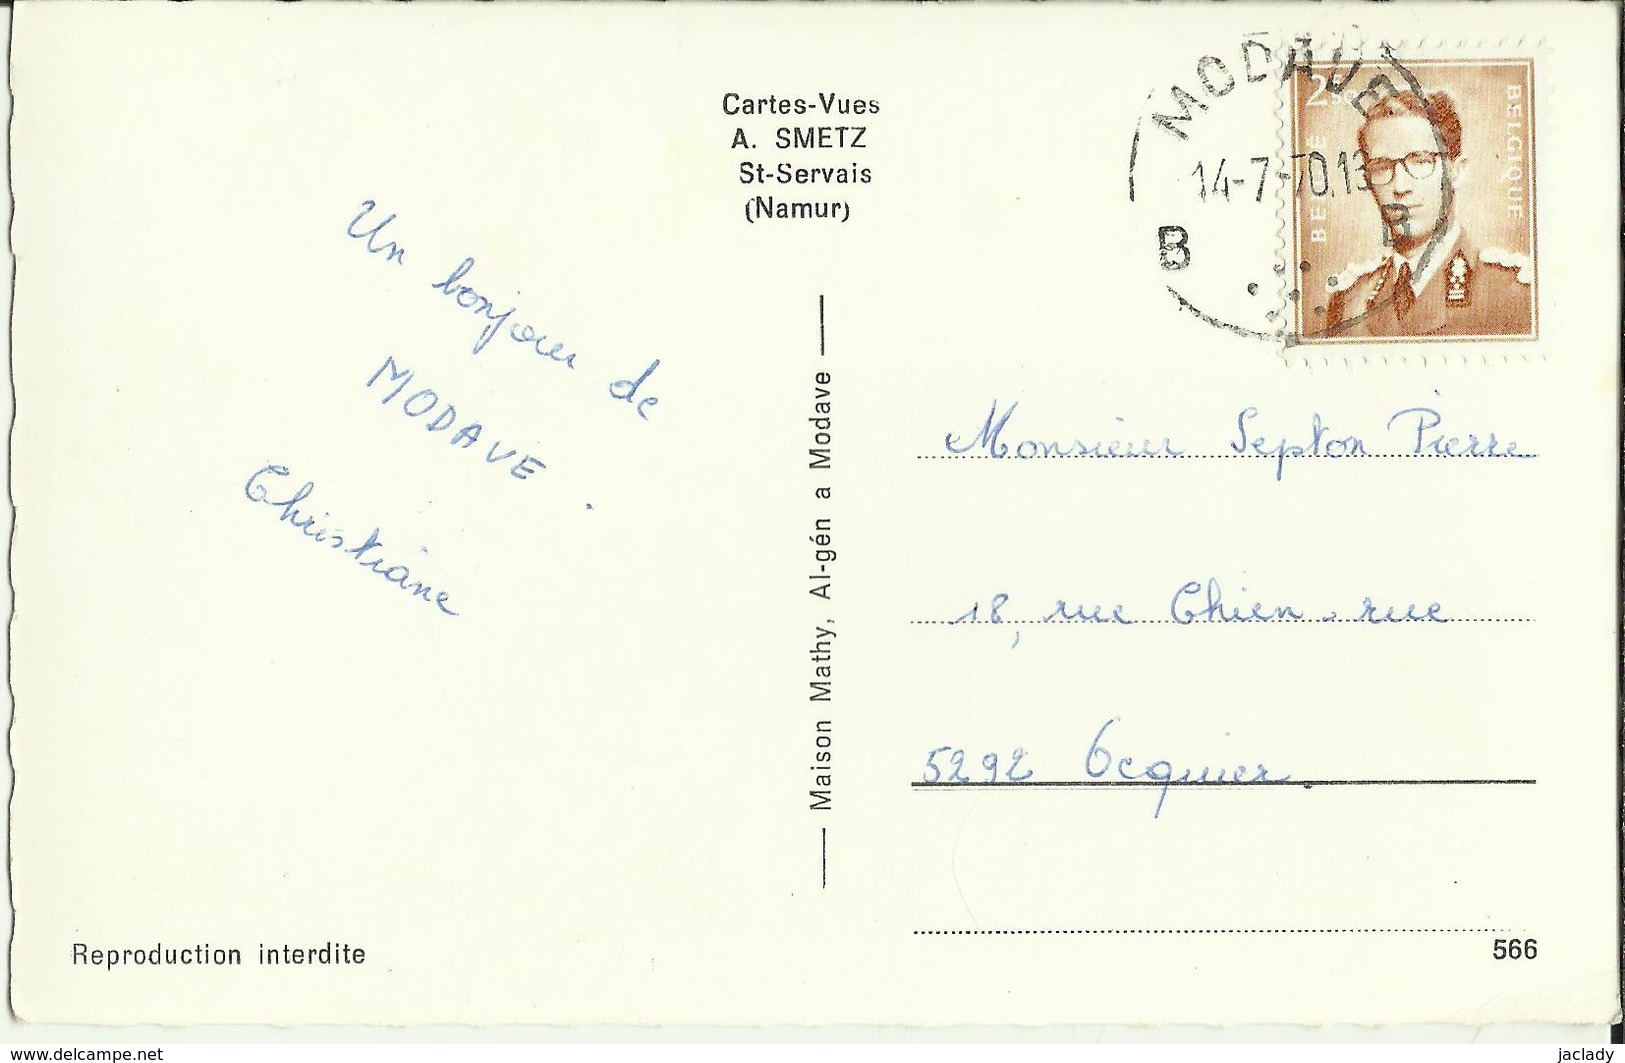 Cartes-Vues
A. SMETZ
St-Servais
(Namur)
Un bonjour de
MODAVE.
Christiane
Maison Mathy, Al-gén a Modave
MODAVE
14-7-70.13
B B
2F50
BELGIË
BELGIQUE
Monsieur Septon Pierre
18, rue Chien-rue
5292 Ocquier.
Reproduction interdite
566
www.delcampe.net
jaclady